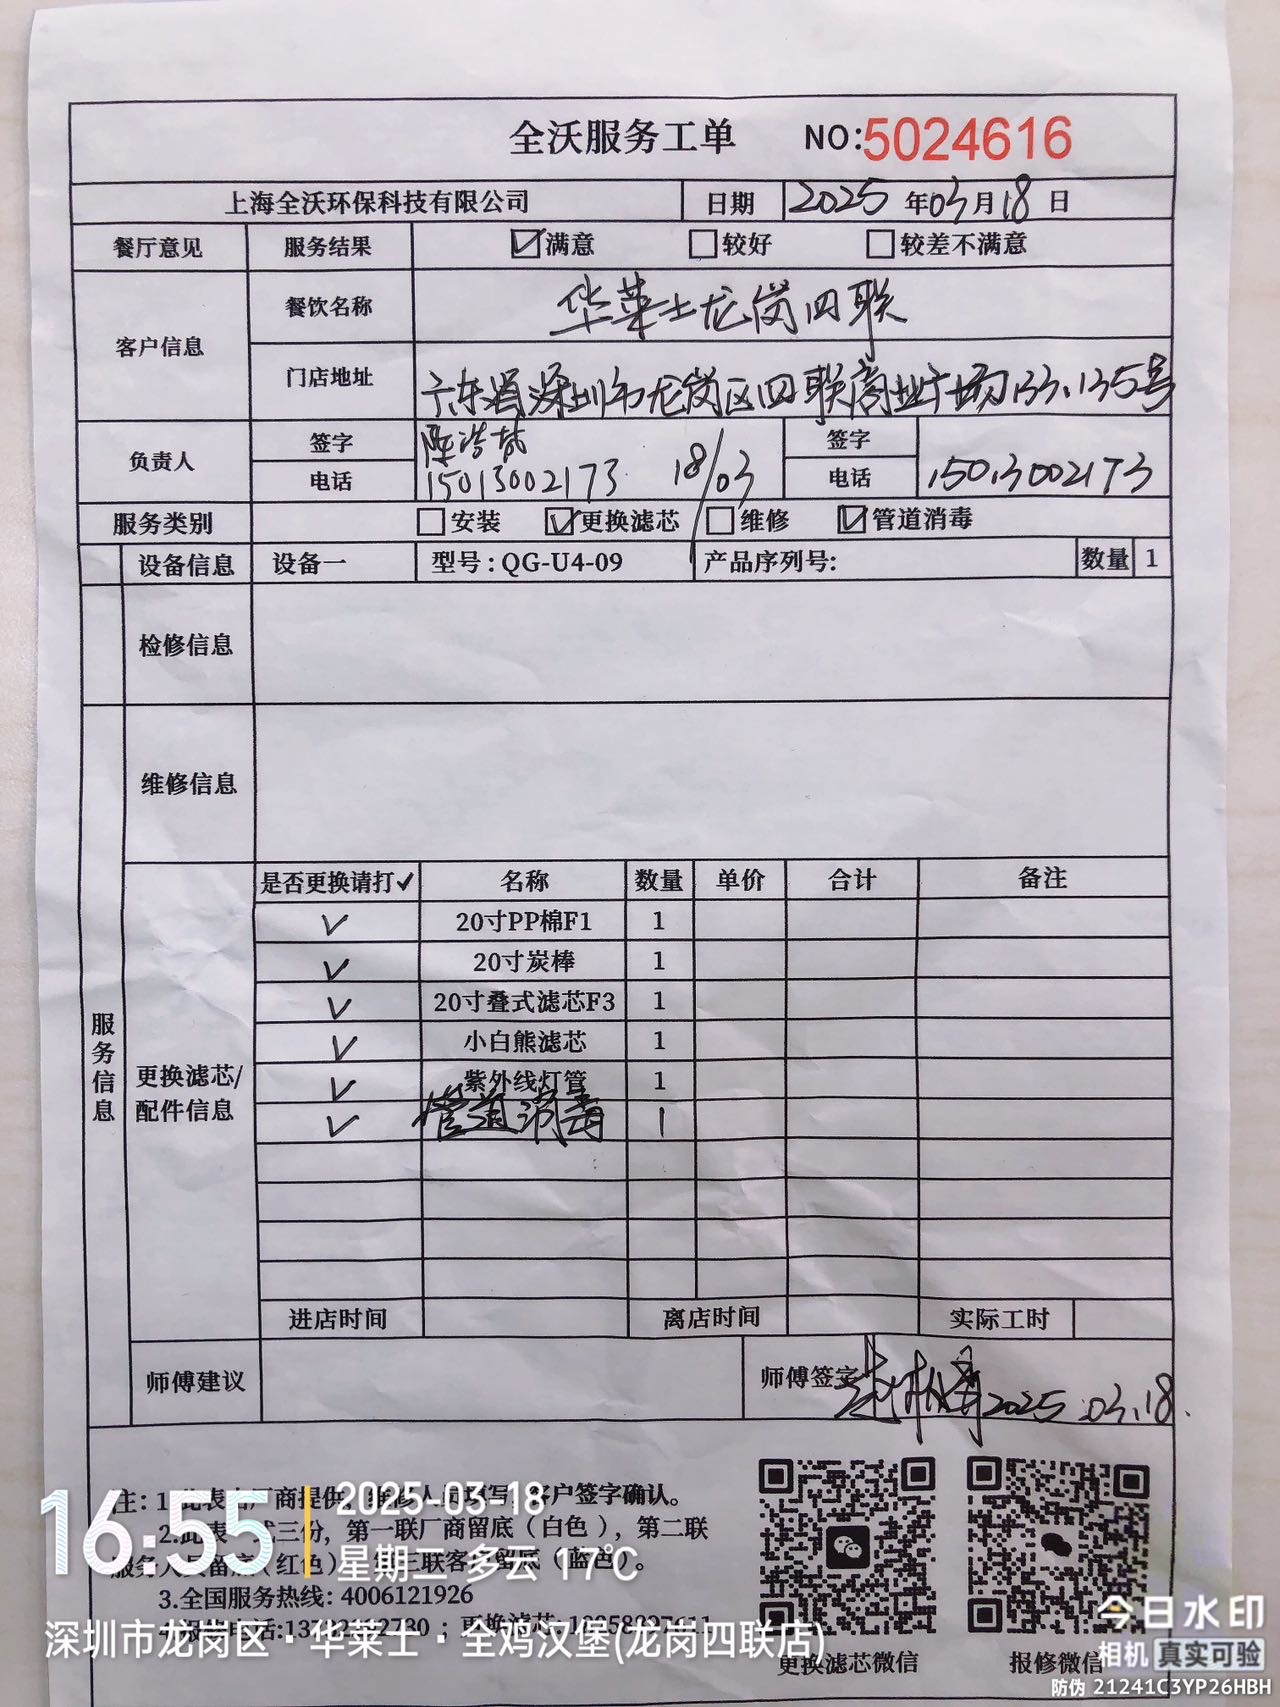 全沃服务工单 NO:5024616
上海全沃环保科技有限公司 日期 2025年03月18日
餐厅意见 服务结果 ☑满意 □较好 □较差不满意
客户信息 餐饮名称 华莱士龙岗四联
门店地址 广东省深圳市龙岗区四联商业广场133.135号
负责人 签字 签字
电话 15013002173 18/03 电话 15013002173
服务类别 □安装 ☑更换滤芯 □维修 ☑管道消毒
设备信息 设备一 型号:QG-U4-09 产品序列号: 数量 1
检修信息
维修信息
服务信息
更换滤芯/
配件信息
是否更换请打✓ 名称 数量 单价 合计 备注
✓ 20寸PP棉F1 1
✓ 20寸炭棒 1
✓ 20寸叠式滤芯F3 1
✓ 小白熊滤芯 1
✓ 紫外线灯管 1
✓ 管道消毒 1
进店时间 离店时间 实际工时
师傅建议 师傅签字 2025.03.18.
注: 1.此表由厂商提供, 维修人员填写, 客户签字确认。
2.此表一式三份, 第一联厂商留底(白色), 第二联
服务人员留底(红色) 第三联客户留底(蓝色)。
3.全国服务热线: 4006121926
更换滤芯微信 报修微信
16:55 2025-03-18
星期二 多云 17℃
深圳市龙岗区·华莱士·全鸡汉堡(龙岗四联店)
今日水印
相机 真实可验
防伪 21241C3YP26HBH